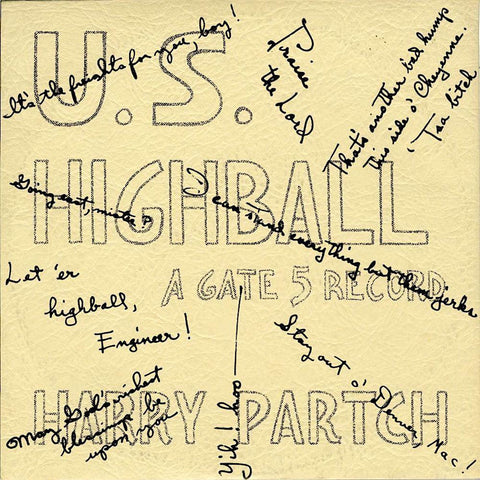 U.S.
HIGHBALL
A GATE 5 RECORD
HARRY PARTCH
It's the freights for you, boy!
Praise
the Lord
That's another bad hump
this side o' Cheyenne.
'Tsa bitch
Going east, mister?
I can stand everything but them jerks
Let 'er
highball,
Engineer!
Stay out o' Denver, Mac!
Yih! hoo
May God's richest
blessings be
upon you